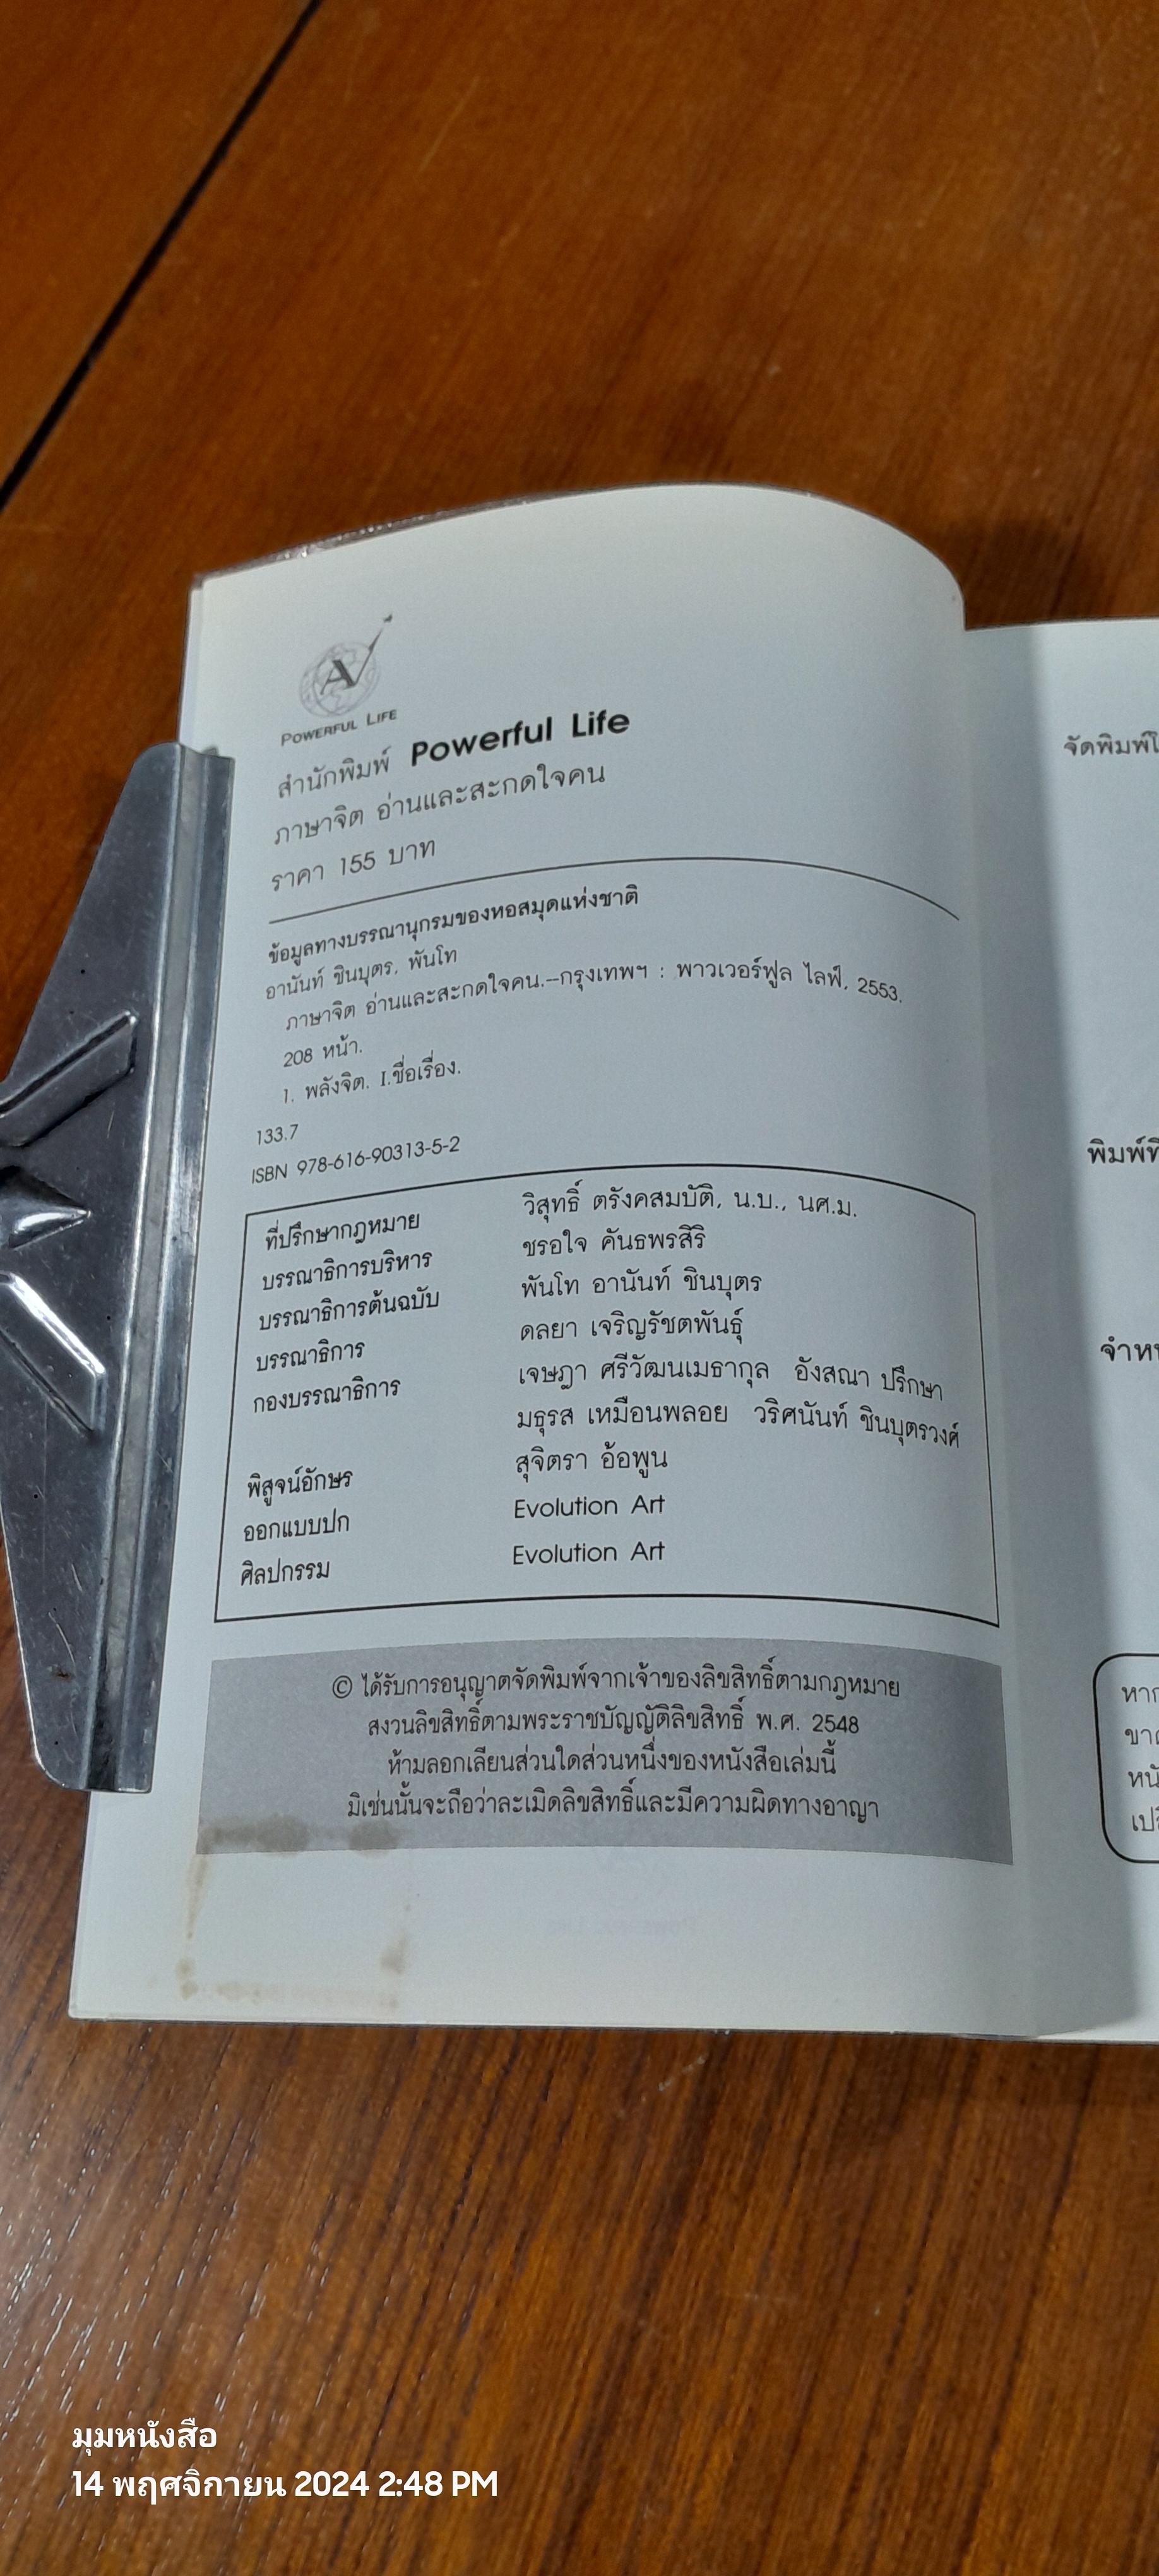 A
POWERFUL LIFE
สำนักพิมพ์ Powerful Life
ภาษาจิต อ่านและสะกดใจคน
ราคา 155 บาท
ข้อมูลทางบรรณานุกรมของหอสมุดแห่งชาติ
อานันท์ ชินบุตร, พันโท
ภาษาจิต อ่านและสะกดใจคน.--กรุงเทพฯ : พาวเวอร์ฟูล ไลฟ์, 2553.
208 หน้า.
1. พลังจิต. I.ชื่อเรื่อง.
133.7
ISBN 978-616-90313-5-2
ที่ปรึกษากฎหมาย วิสุทธิ์ ตรังคสมบัติ, น.บ., นศ.ม.
บรรณาธิการบริหาร ชรอใจ คันธพรสิริ
บรรณาธิการต้นฉบับ พันโท อานันท์ ชินบุตร
บรรณาธิการ ดลยา เจริญรัชตพันธุ์
กองบรรณาธิการ เจษฎา ศรีวัฒนเมธากุล อังสณา ปรึกษา
มธุรส เหมือนพลอย วริศนันท์ ชินบุตรวงศ์
พิสูจน์อักษร สุจิตรา อ้อพูน
ออกแบบปก Evolution Art
ศิลปกรรม Evolution Art
© ได้รับการอนุญาตจัดพิมพ์จากเจ้าของลิขสิทธิ์ตามกฎหมาย
สงวนลิขสิทธิ์ตามพระราชบัญญัติลิขสิทธิ์ พ.ศ. 2548
ห้ามลอกเลียนส่วนใดส่วนหนึ่งของหนังสือเล่มนี้
มิเช่นนั้นจะถือว่าละเมิดลิขสิทธิ์และมีความผิดทางอาญา
จัดพิมพ์โ
พิมพ์ที่
จำหน
หาก
ขาด
หนั
เปลี
มุมหนังสือ
14 พฤศจิกายน 2024 2:48 PM